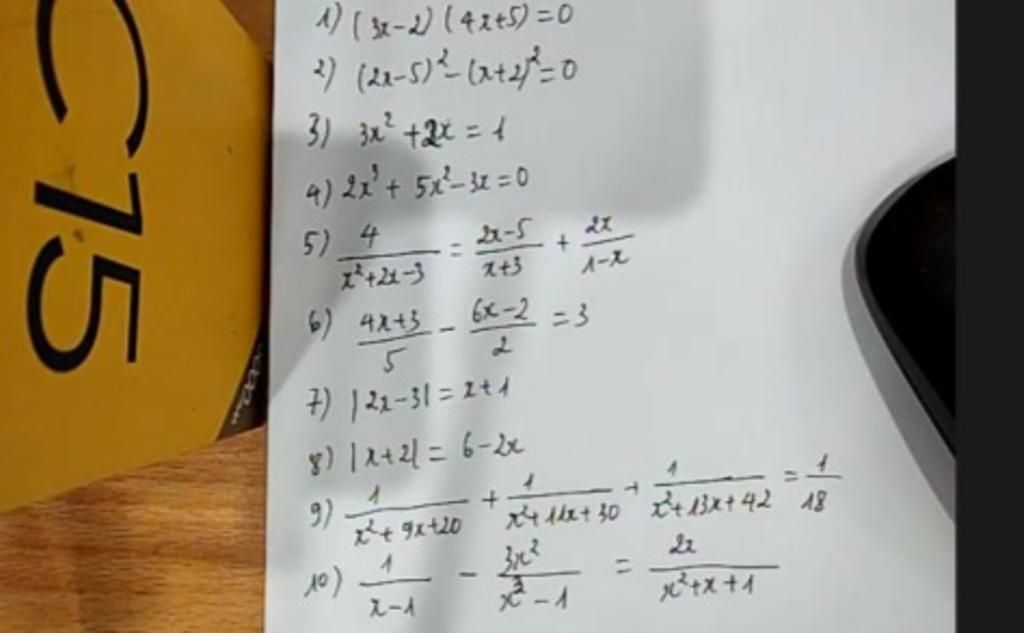 C15
1) (3x-2) (4x+5) = 0
2) (2x-5)² - (x+2)² = 0
3) 3x² + 2x = 1
4) 2x³ + 5x² - 3x = 0
5) 4/(x²+2x-3) = (2x-5)/(x+3) + 2x/(1-x)
6) (4x+3)/5 - (6x-2)/2 = 3
7) |2x-3| = x+1
8) |x+2| = 6-2x
9) 1/(x²+9x+20) + 1/(x²+11x+30) + 1/(x²+13x+42) = 1/18
10) 1/(x-1) - 3x²/(x³-1) = 2x/(x²+x+1)